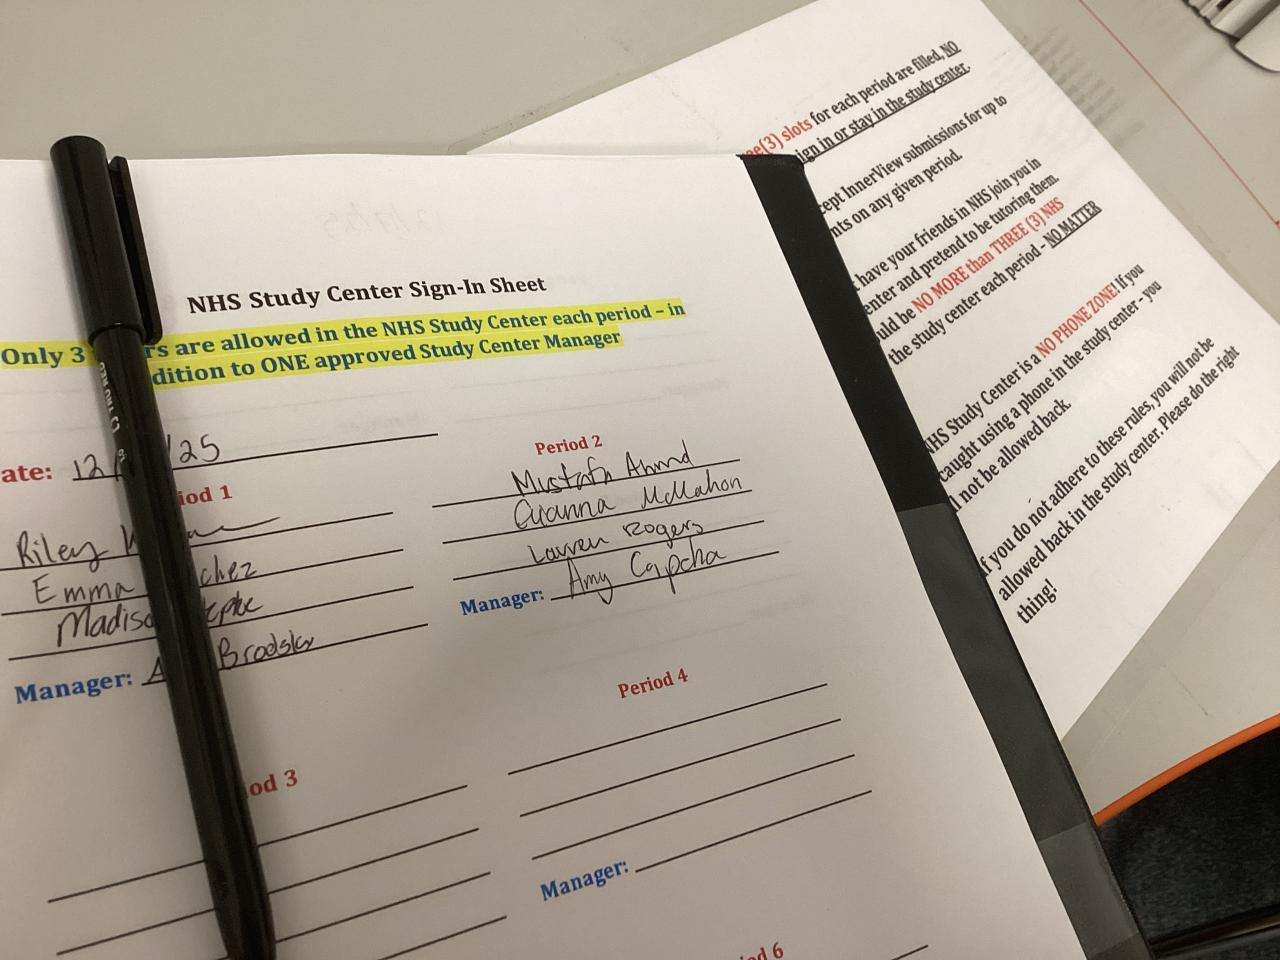 NHS Study Center Sign-In Sheet
Only 3 rs are allowed in the NHS Study Center each period – in
dition to ONE approved Study Center Manager
ate: 12/ /25
iod 1
Riley
Emma chez
Madiso epke
Manager: A Brodsky
Period 2
Mustafa Ahmd
McMahon
Lauren Rogers
Amy Capcha
Manager:
iod 3
Period 4
Manager:
iod 6
ee(3) slots for each period are filled, NO
ign in or stay in the study center.
cept InnerView submissions for up to
nts on any given period.
have your friends in NHS join you in
enter and pretend to be tutoring them.
uld be NO MORE than THREE (3) NHS
the study center each period – NO MATTER
NHS Study Center is a NO PHONE ZONE! If you
caught using a phone in the study center – you
l not be allowed back.
If you do not adhere to these rules, you will not be
allowed back in the study center. Please do the right
thing!